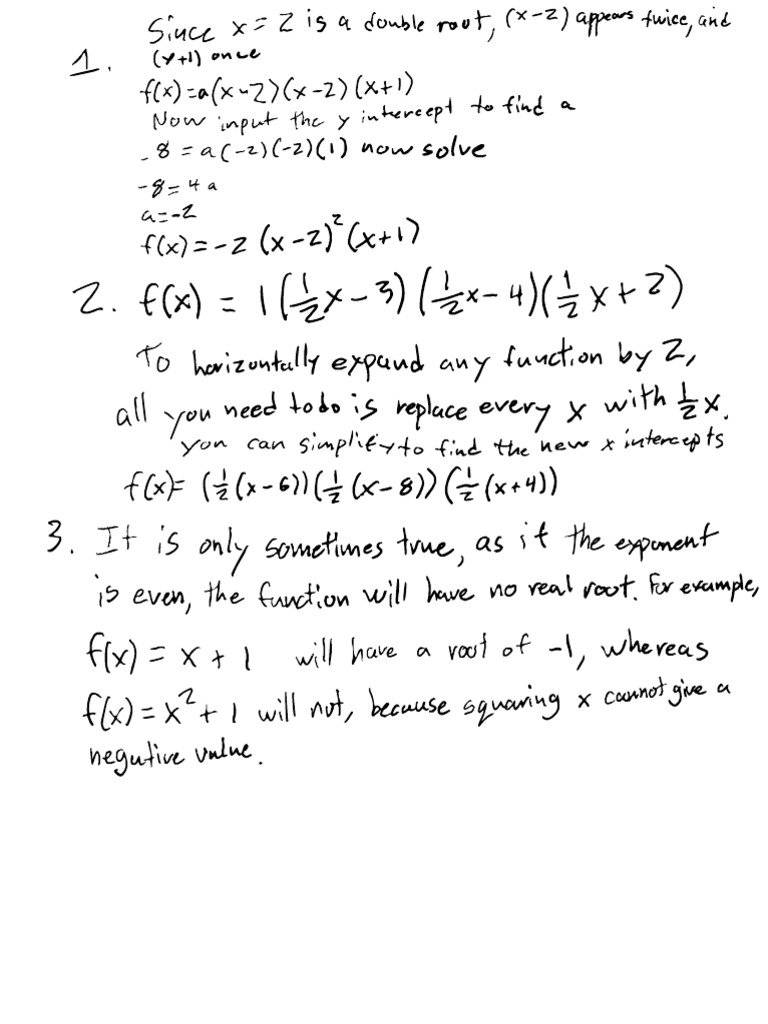 Since x = 2 is a double root, (x-2) appears twice, and
1. (x+1) once
f(x)=a(x-2)(x-2)(x+1)
Now input the y intercept to find a
-8 = a(-2)(-2)(1) now solve
-8=4a
a=-2
f(x)=-2(x-2)²(x+1)
2. f(x) = 1(1/2x-3)(1/2x-4)(1/2x+2)
To horizontally expand any function by 2,
all you need to do is replace every x with 1/2x.
You can simplify to find the new x intercepts
f(x)=(1/2(x-6))(1/2(x-8))(1/2(x+4))
3. It is only sometimes true, as if the exponent
is even, the function will have no real root. For example,
f(x) = x + 1 will have a root of -1, whereas
f(x)=x²+1 will not, because squaring x cannot give a
negative value.